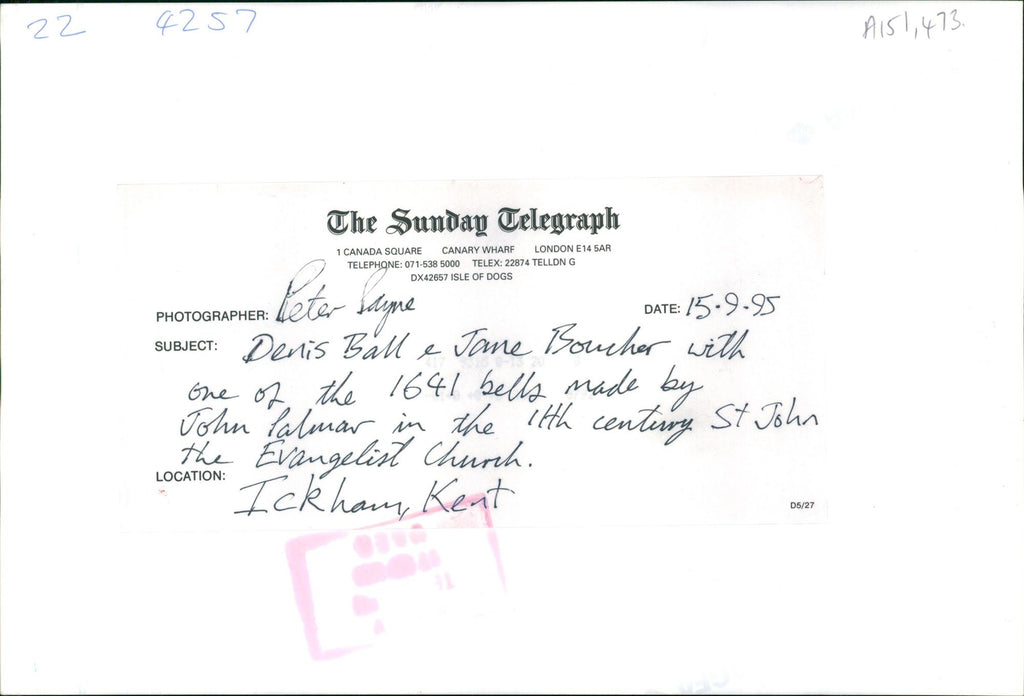 22 4257 A151,473.
The Sunday Telegraph
1 CANADA SQUARE CANARY WHARF LONDON E14 5AR
TELEPHONE: 071-538 5000 TELEX: 22874 TELLDN G
DX42657 ISLE OF DOGS
PHOTOGRAPHER: Peter Payne DATE: 15.9.95
SUBJECT: Denis Ball & Jane Boucher with
one of the 1641 bells made by
John Palmar in the 11th century St John
the Evangelist Church.
LOCATION:
Ickham, Kent
D5/27